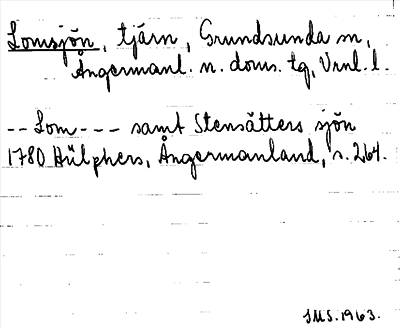 Lomsjön, tjärn, Grundsunda sn,
Ångermanl. n. doms. tg, Vrnl. l.
-- Lom --- samt Stensätters sjön
1780 Hülphers, Ångermanland, s. 264.
SMS. 1963.